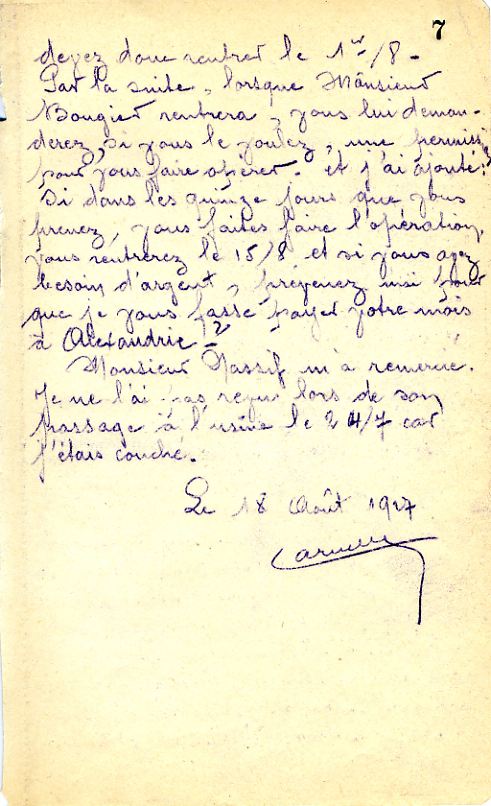 7
devez donc rentrer le 1er/8 -
Par la suite, lorsque Monsieur
Bougier rentrera, vous lui deman-
derez, si vous le voulez, une permiss
pour vous faire opérer - et j'ai ajouté:
Si dans les quinze jours que vous
prenez, vous faites faire l'opération,
vous rentrerez le 15/8 et si vous avez
besoin d'argent, prévenez moi pour
que je vous fasse payer votre mois
à Alexandrie - ?
Monsieur Nassif m'a remercié.
Je ne l'ai pas reçu lors de son
passage à l'usine le 24/7 car
j'étais couché.
Le 18 Août 1927